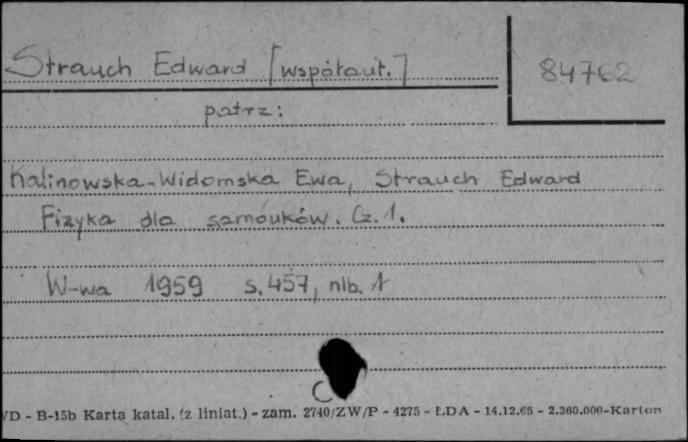 Strauch Edward [współaut.]
84762
patrz:
Kalinowska-Widomska Ewa, Strauch Edward
Fizyka dla samouków. Cz. 1.
W-wa 1959 s. 457, nlb. 1
C
VD - B-15b Karta katal. (z liniat.) - zam. 2740/ZW/P - 4275 - ŁDA - 14.12.65 - 2.360.000-Karton